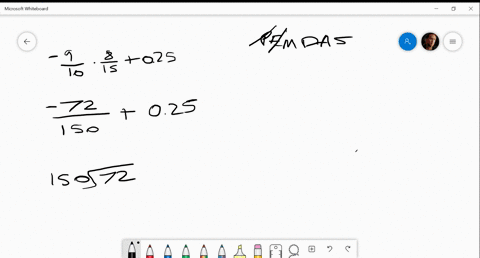 Microsoft Whiteboard
PEMDAS
-9/10 · 8/15 + 0.25
-72/150 + 0.25
150√72